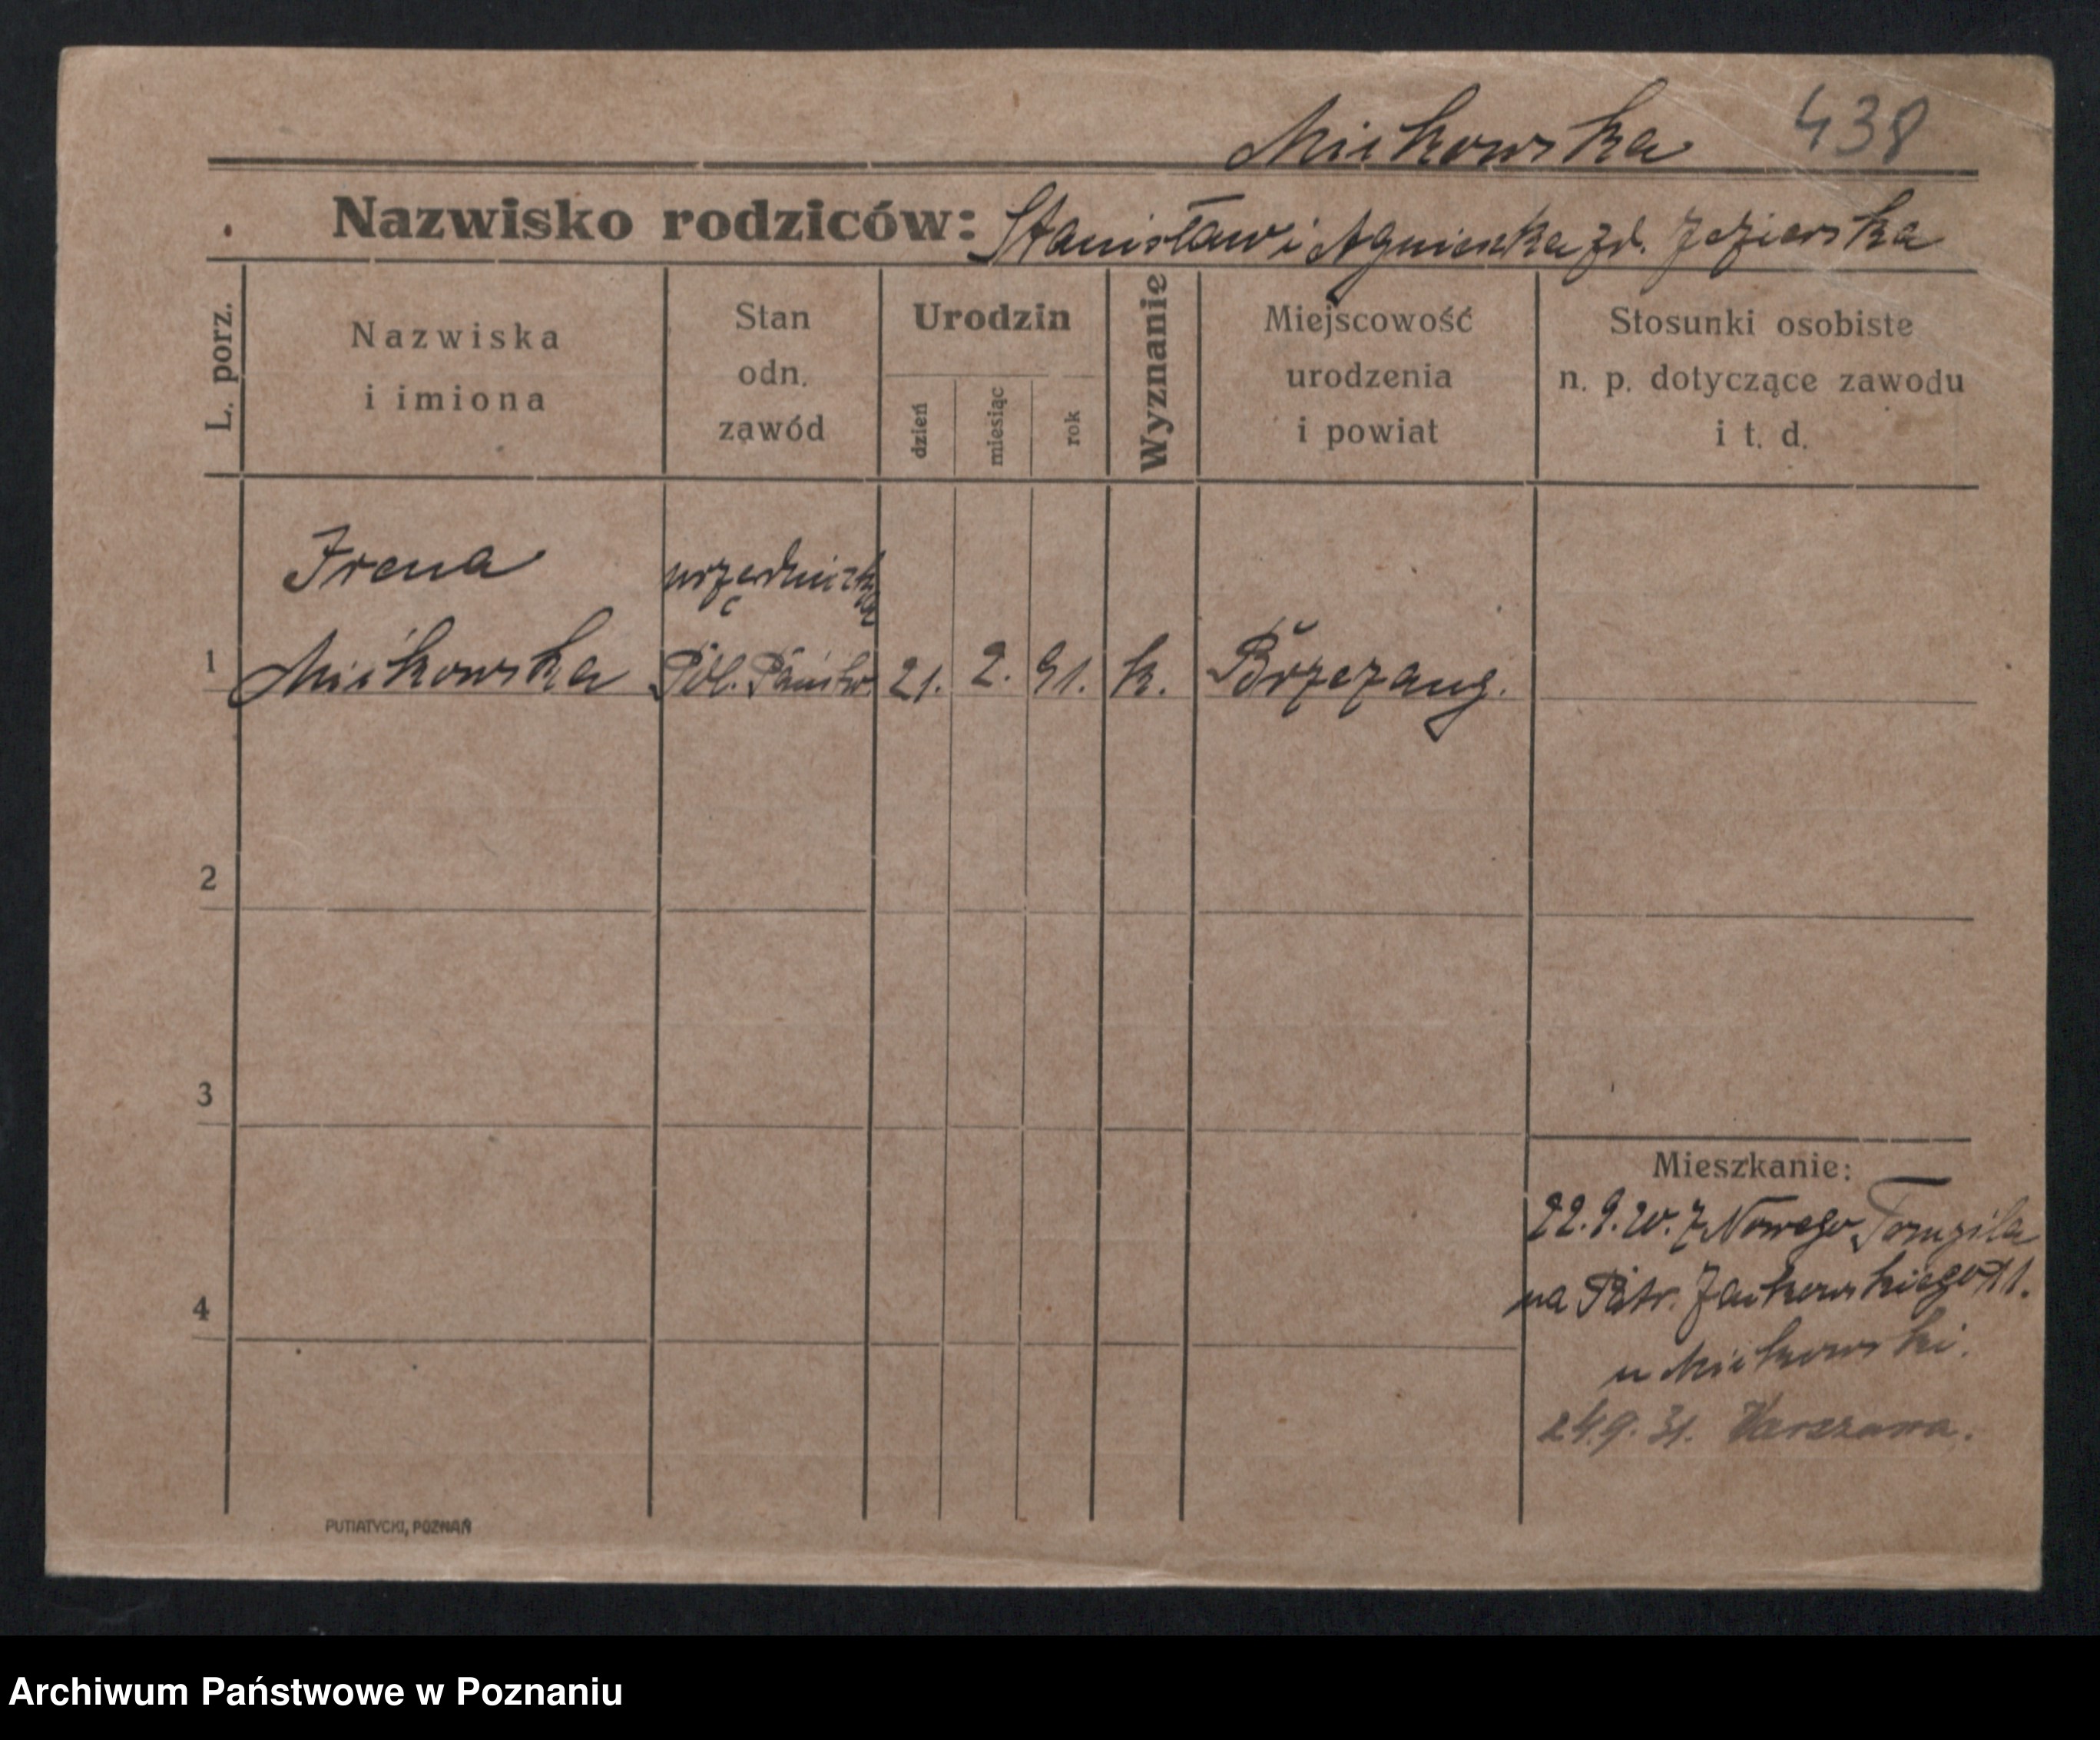 Mickowska 438
Nazwisko rodziców: Stanisław i Agnieszka zd. Jezierska
L. porz.
Nazwiska
i imiona
Stan
odn.
zawód
Urodzin
dzień
miesiąc
rok
Wyznanie
Miejscowość
urodzenia
i powiat
Stosunki osobiste
n. p. dotyczące zawodu
i t. d.
Irena urzędniczka
1 Mickowska Pol. Państw. 21. 2. 91. k. Brzezany.
2
3
Mieszkanie:
22.9.20. z Nowego
4 na Patr. Jackowskiego 11.
u Mickowski.
24.9.31. Warszawa.
PUTIATYCKI, POZNAŃ
Archiwum Państwowe w Poznaniu